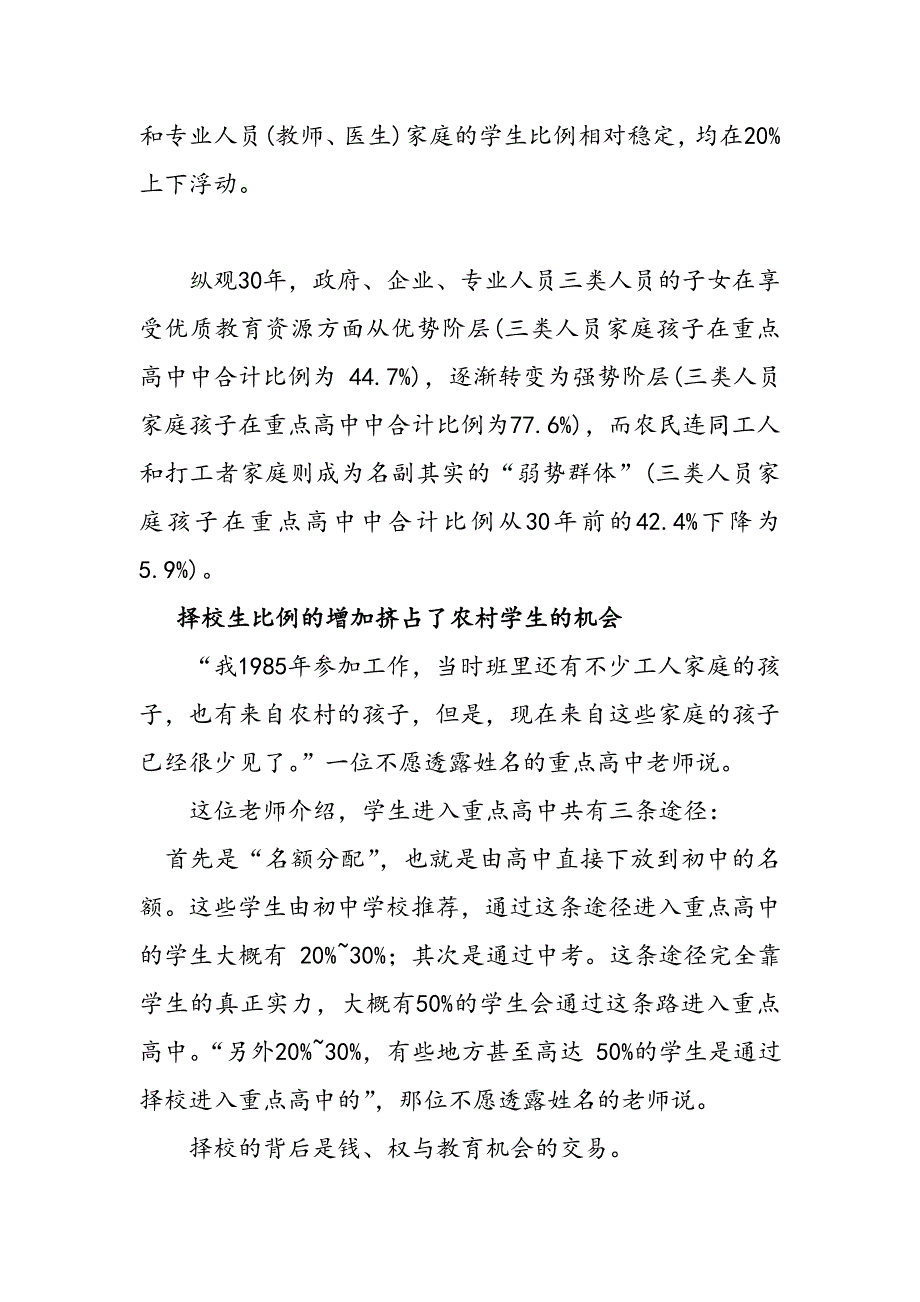 和专业人员(教师、医生)家庭的学生比例相对稳定，均在20%
上下浮动。
纵观30年，政府、企业、专业人员三类人员的子女在享
受优质教育资源方面从优势阶层(三类人员家庭孩子在重点
高中中合计比例为 44.7%)，逐渐转变为强势阶层(三类人员
家庭孩子在重点高中中合计比例为77.6%)，而农民连同工人
和打工者家庭则成为名副其实的“弱势群体”(三类人员家
庭孩子在重点高中中合计比例从30年前的42.4%下降为
5.9%)。
择校生比例的增加挤占了农村学生的机会
“我1985年参加工作，当时班里还有不少工人家庭的孩
子，也有来自农村的孩子，但是，现在来自这些家庭的孩子
已经很少见了。”一位不愿透露姓名的重点高中老师说。
这位老师介绍，学生进入重点高中共有三条途径：
首先是“名额分配”，也就是由高中直接下放到初中的名
额。这些学生由初中学校推荐，通过这条途径进入重点高中
的学生大概有 20%~30%；其次是通过中考。这条途径完全靠
学生的真正实力，大概有50%的学生会通过这条路进入重点
高中。“另外20%~30%，有些地方甚至高达 50%的学生是通过
择校进入重点高中的”，那位不愿透露姓名的老师说。
择校的背后是钱、权与教育机会的交易。